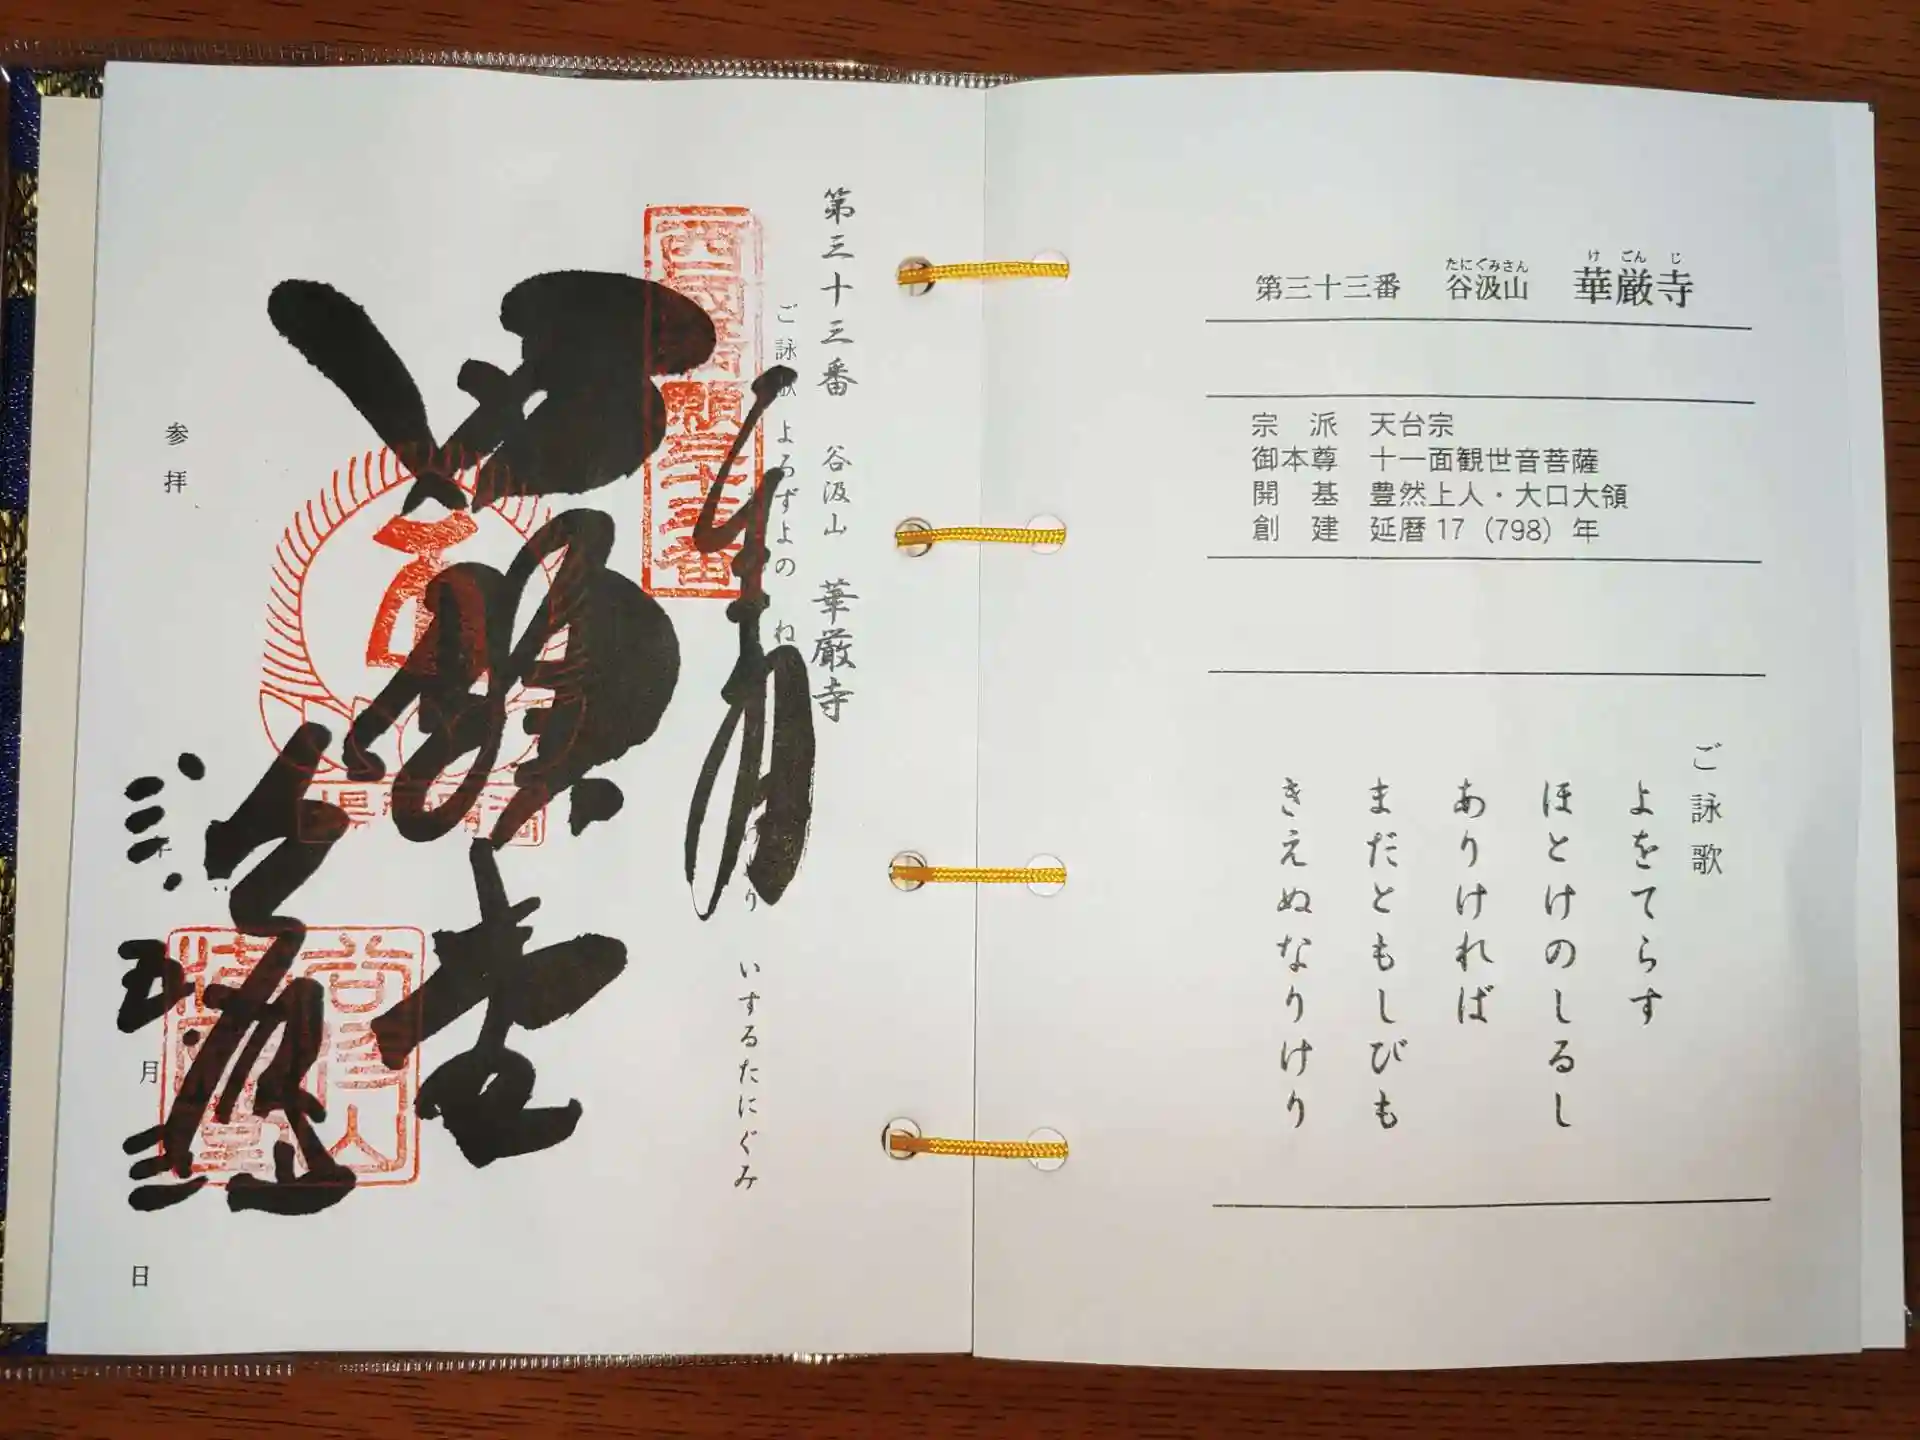 第三十三番 谷汲山 華厳寺
ご詠歌 よろずよの ね
いするたにぐみ
西国
満願三十三番
奉拝
満願堂
谷汲山
三.五.三
参拝
月
日
第三十三番 谷汲山 華厳寺
たにぐみさん けごんじ
宗派 天台宗
御本尊 十一面観世音菩薩
開基 豊然上人・大口大領
創建 延暦17（798）年
ご詠歌
よをてらす
ほとけのしるし
ありければ
まだともしびも
きえぬなりけり